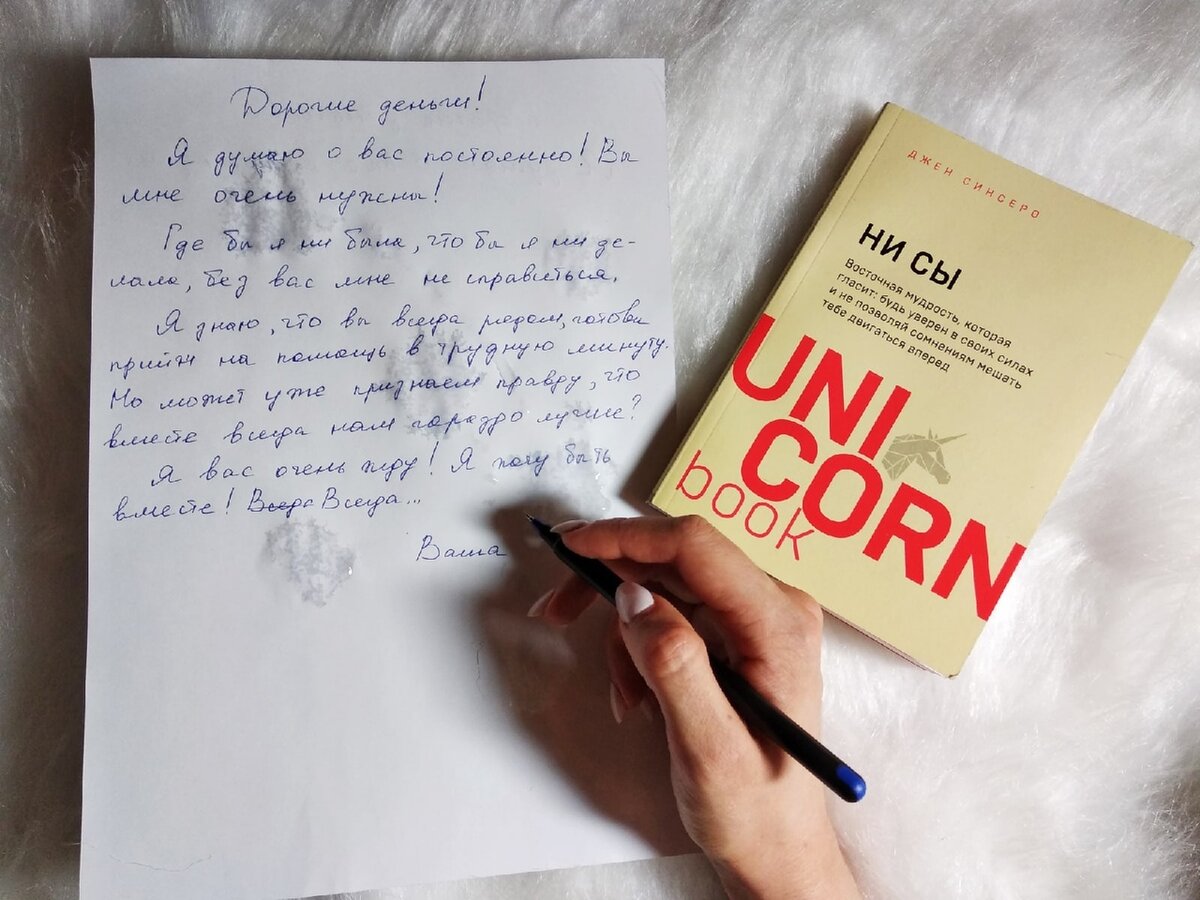 Дорогие деньги!
Я думаю о вас постоянно! Вы
мне очень нужны!
Где бы я ни была, что бы я ни де-
лала, без вас мне не справиться.
Я знаю, что вы всегда рядом, готовы
прийти на помощь в трудную минуту.
Но может уже признаем правду, что
вместе всегда нам гораздо лучше?
Я вас очень жду! Я хочу быть
вместе! Всегда Всегда...
Ваша
ДЖЕН СИНСЕРО
НИ СЫ
Восточная мудрость, которая
гласит: будь уверен в своих силах
и не позволяй сомнениям мешать
тебе двигаться вперед
UNI
CORN
book